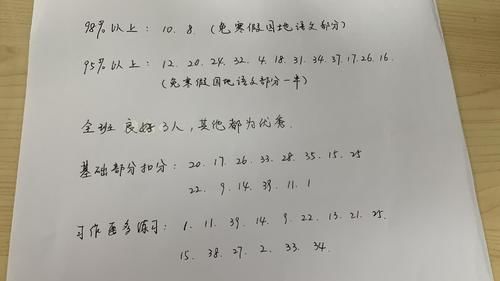 98%以上：10. 8.（免寒假园地语文部分）
95%以上：12. 20. 24. 32. 4. 18. 31. 34. 37. 17. 26. 16.
（免寒假园地语文部分一半）
全班 良好3人，其他都为优秀.
基础部分扣分：20. 17. 26. 33. 28. 35. 15. 25
22. 9. 14. 39. 11. 1
习作要多练习：1. 11. 39. 14. 9. 22. 13. 21. 25.
15. 38. 27. 2. 33. 34.